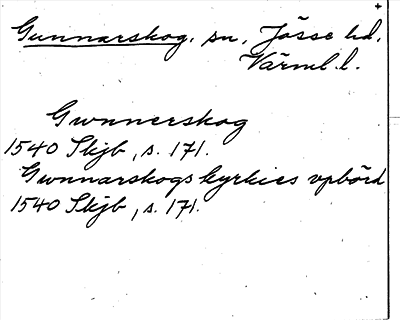 Gunnarskog. sn. Jösse hd.
Värml. l.
Gwnnerskog
1540 Skjb, s. 171.
Gwnnarskogs kyrkies vpbörd
1540 Skjb, s. 171.